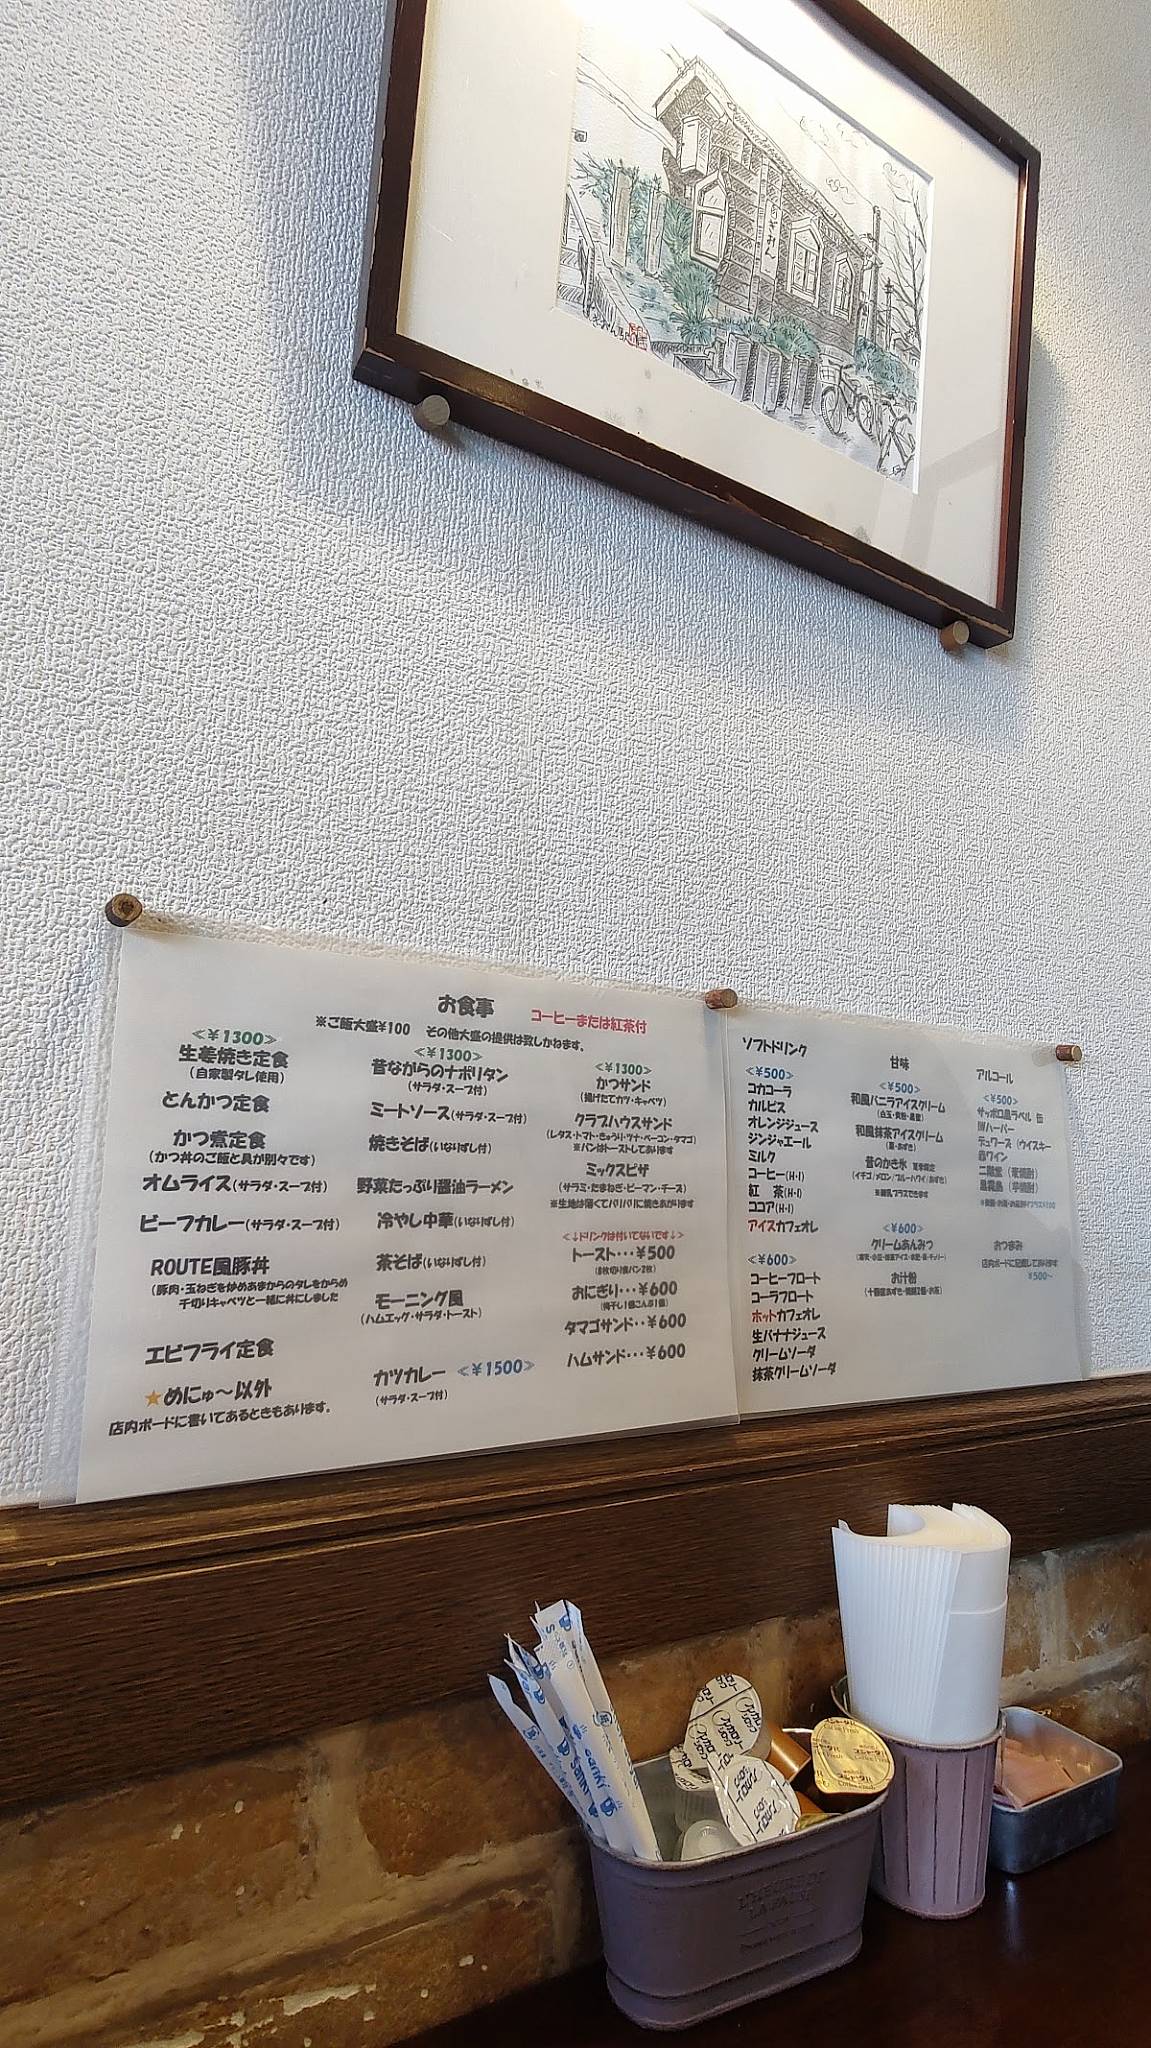 お食事
コーヒーまたは紅茶付
※ご飯大盛¥100 その他大盛の提供は致しかねます。
≪¥1300≫
生姜焼き定食
(自家製タレ使用)
とんかつ定食
かつ煮定食
(かつ丼のご飯と具が別々です)
オムライス(サラダ・スープ付)
ビーフカレー(サラダ・スープ付)
ROUTE風豚丼
(豚肉・玉ねぎを炒めあまからのタレをからめ
千切りキャベツと一緒に丼にしました
エビフライ定食
★めにゅ〜以外
店内ボードに書いてあるときもあります。
≪¥1300≫
昔ながらのナポリタン
(サラダ・スープ付)
ミートソース(サラダ・スープ付)
焼きそば(いなりずし付)
野菜たっぷり醤油ラーメン
冷やし中華(いなりずし付)
茶そば(いなりずし付)
モーニング風
(ハムエッグ・サラダ・トースト)
カツカレー ≪¥1500≫
(サラダ・スープ付)
≪¥1300≫
かつサンド
(揚げたてカツ・キャベツ)
クラブハウスサンド
(レタス・トマト・きゅうり・ツナ・ベーコン・タマゴ)
※パンはトーストしてあります
ミックスピザ
(サラミ・たまねぎ・ピーマン・チーズ)
※生地は薄くてパリパリに焼きあがります
<↓ドリンクは付いてないです↓>
トースト・・・¥500
(8枚切り食パン2枚)
おにぎり・・・¥600
(梅干し1個こんぶ1個)
タマゴサンド・・¥600
ハムサンド・・・¥600
ソフトドリンク
≪¥500≫
コカコーラ
カルピス
オレンジジュース
ジンジャエール
ミルク
コーヒー(H・I)
紅 茶(H・I)
ココア(H・I)
アイスカフェオレ
≪¥600≫
コーヒーフロート
コーラフロート
ホットカフェオレ
生バナナジュース
クリームソーダ
抹茶クリームソーダ
甘味
≪¥500≫
和風バニラアイスクリーム
(白玉・黄粉・黒蜜)
和風抹茶アイスクリーム
昔のかき氷 夏季限定
(イチゴ/メロン/ブルーハワイ/あずき)
※練乳プラスできます
≪¥600≫
クリームあんみつ
お汁粉
アルコール
≪¥500≫
サッポロ黒ラベル 缶
IWハーパー
デュワース (ウイスキー
赤ワイン
二階堂 (麦焼酎)
黒霧島 (芋焼酎)
おつまみ
店内ボードに記載してあります
¥500〜